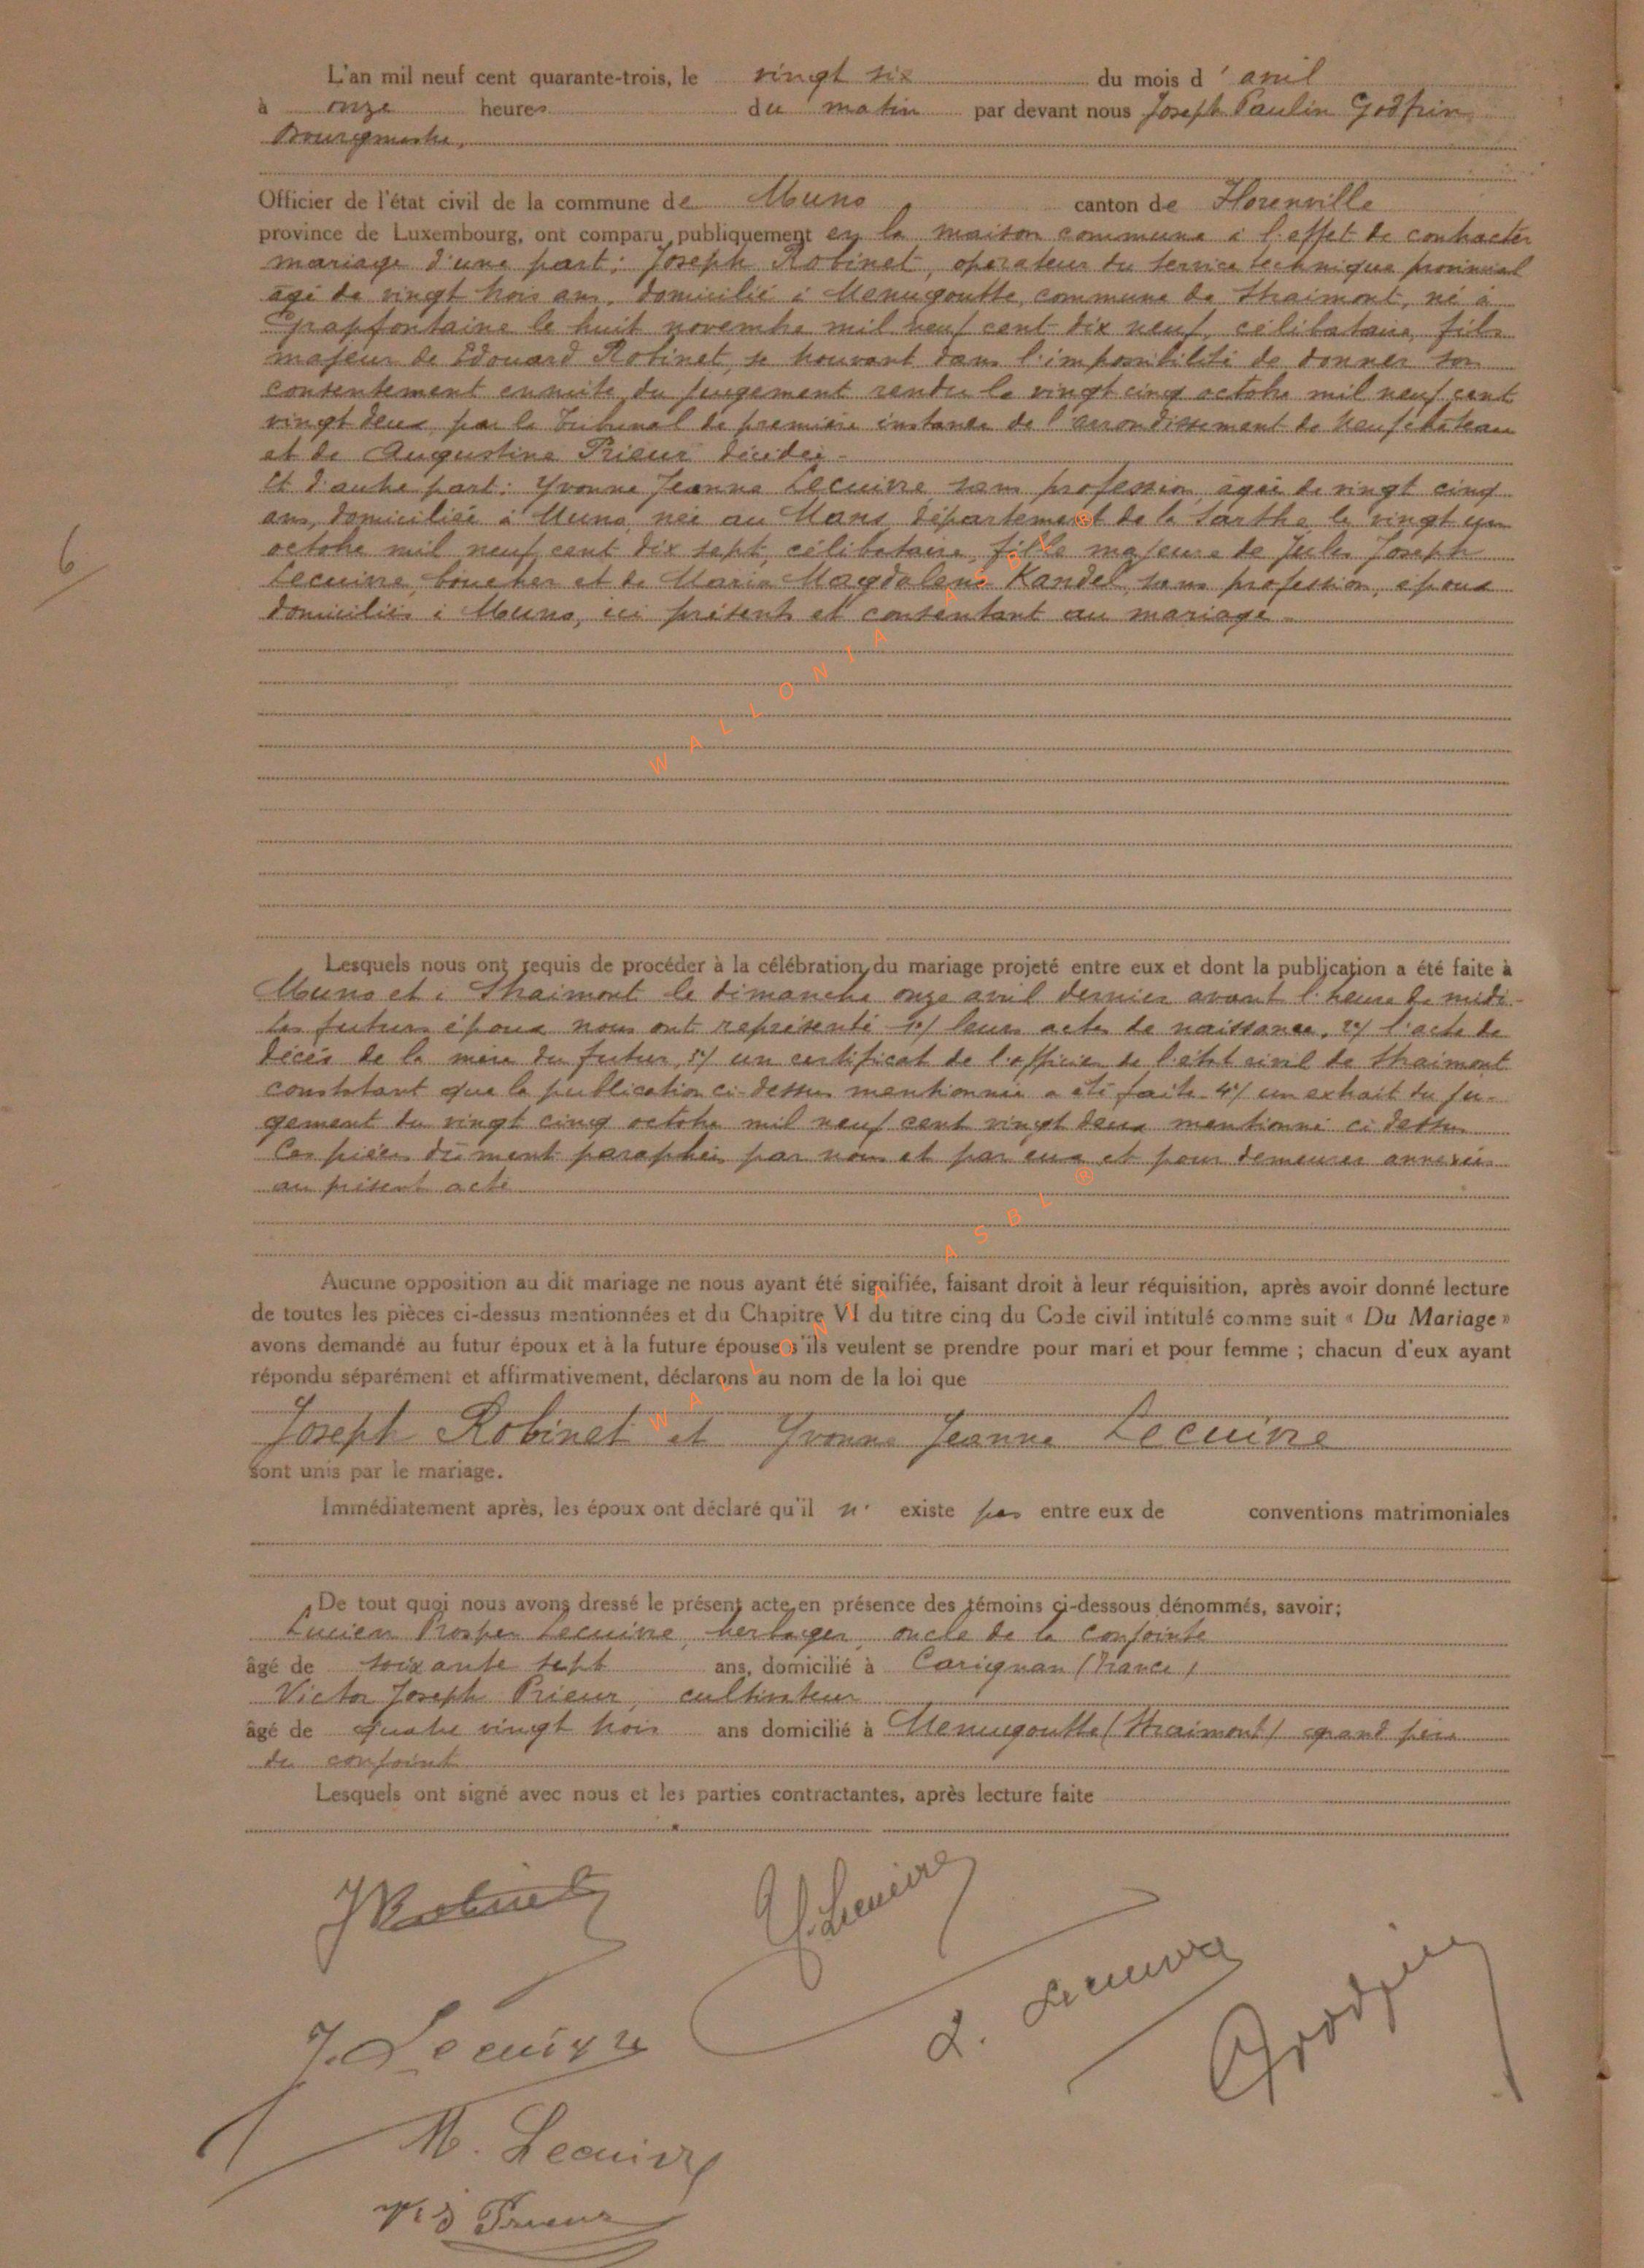 L'an mil neuf cent quarante-trois, le vingt six du mois d'avril
à onze heures du matin par devant nous Joseph Paulin Godfrin
Bourgmestre,
Officier de l'état civil de la commune de Muno canton de Florenville
province de Luxembourg, ont comparu publiquement en la maison commune à l'effet de contracter
mariage d'une part: Joseph Robinet, opérateur du service technique provincial
agé de vingt trois ans, domicilié à Menugoutte, commune de Straimont, né à
Grapfontaine le huit novembre mil neuf cent dix neuf, célibataire, fils
majeur de Edouard Robinet, se trouvant dans l'impossibilité de donner son
consentement ensuite du jugement rendu le vingt cinq octobre mil neuf cent
vingt deux par le Tribunal de première instance de l'arrondissement de Neufchateau
et de Augustine Prieur décédée
Et d'autre part: Yvonne Jeanne Lecuivre sans profession, agée de vingt cinq
ans, domiciliée à Muno, née au Mans département de la Sarthe le vingt un
octobre mil neuf cent dix sept, célibataire, fille majeure de Jules Joseph
Lecuivre, boucher et de Maria Magdalena Kandel, sans profession, époux
domiciliés à Muno, ici présents et consentant au mariage.
6
Lesquels nous ont requis de procéder à la célébration du mariage projeté entre eux et dont la publication a été faite à
Muno et à Straimont le dimanche onze avril dernier avant l'heure de midi.
les futurs époux nous ont représenté 1°/ leurs actes de naissance, 2°/ l'acte de
décès de la mère du futur, 3°/ un certificat de l'officier de l'état civil de Straimont
constatant que la publication ci-dessus mentionnée a été faite 4°/ un extrait du ju-
gement du vingt cinq octobre mil neuf cent vingt deux mentionné ci dessus
Ces pièces dûment paraphées par nous et par eux et pour demeurer annexées
au présent acte
Aucune opposition au dit mariage ne nous ayant été signifiée, faisant droit à leur réquisition, après avoir donné lecture
de toutes les pièces ci-dessus mentionnées et du Chapitre VI du titre cinq du Code civil intitulé comme suit « Du Mariage »
avons demandé au futur époux et à la future épouse s'ils veulent se prendre pour mari et pour femme ; chacun d'eux ayant
répondu séparément et affirmativement, déclarons au nom de la loi que
Joseph Robinet et Yvonne Jeanne Lecuivre
sont unis par le mariage.
Immédiatement après, les époux ont déclaré qu'il n' existe pas entre eux de conventions matrimoniales
De tout quoi nous avons dressé le présent acte, en présence des témoins ci-dessous dénommés, savoir;
Lucien Prosper Lecuivre, herbager oncle de la conjointe
âgé de soixante sept ans, domicilié à Carignan (France)
Victor Joseph Prieur, cultivateur
âgé de quatre vingt trois ans domicilié à Menugoutte (Straimont) grand père
du conjoint
Lesquels ont signé avec nous et les parties contractantes, après lecture faite
JRobinet
Y. Lecuivre
L. Lecuivre
Godfrin
J. Lecuivre
M. Lecuivre
V. J Prieur
WALLONIA ASBL ®
WALLONIA ASBL ®